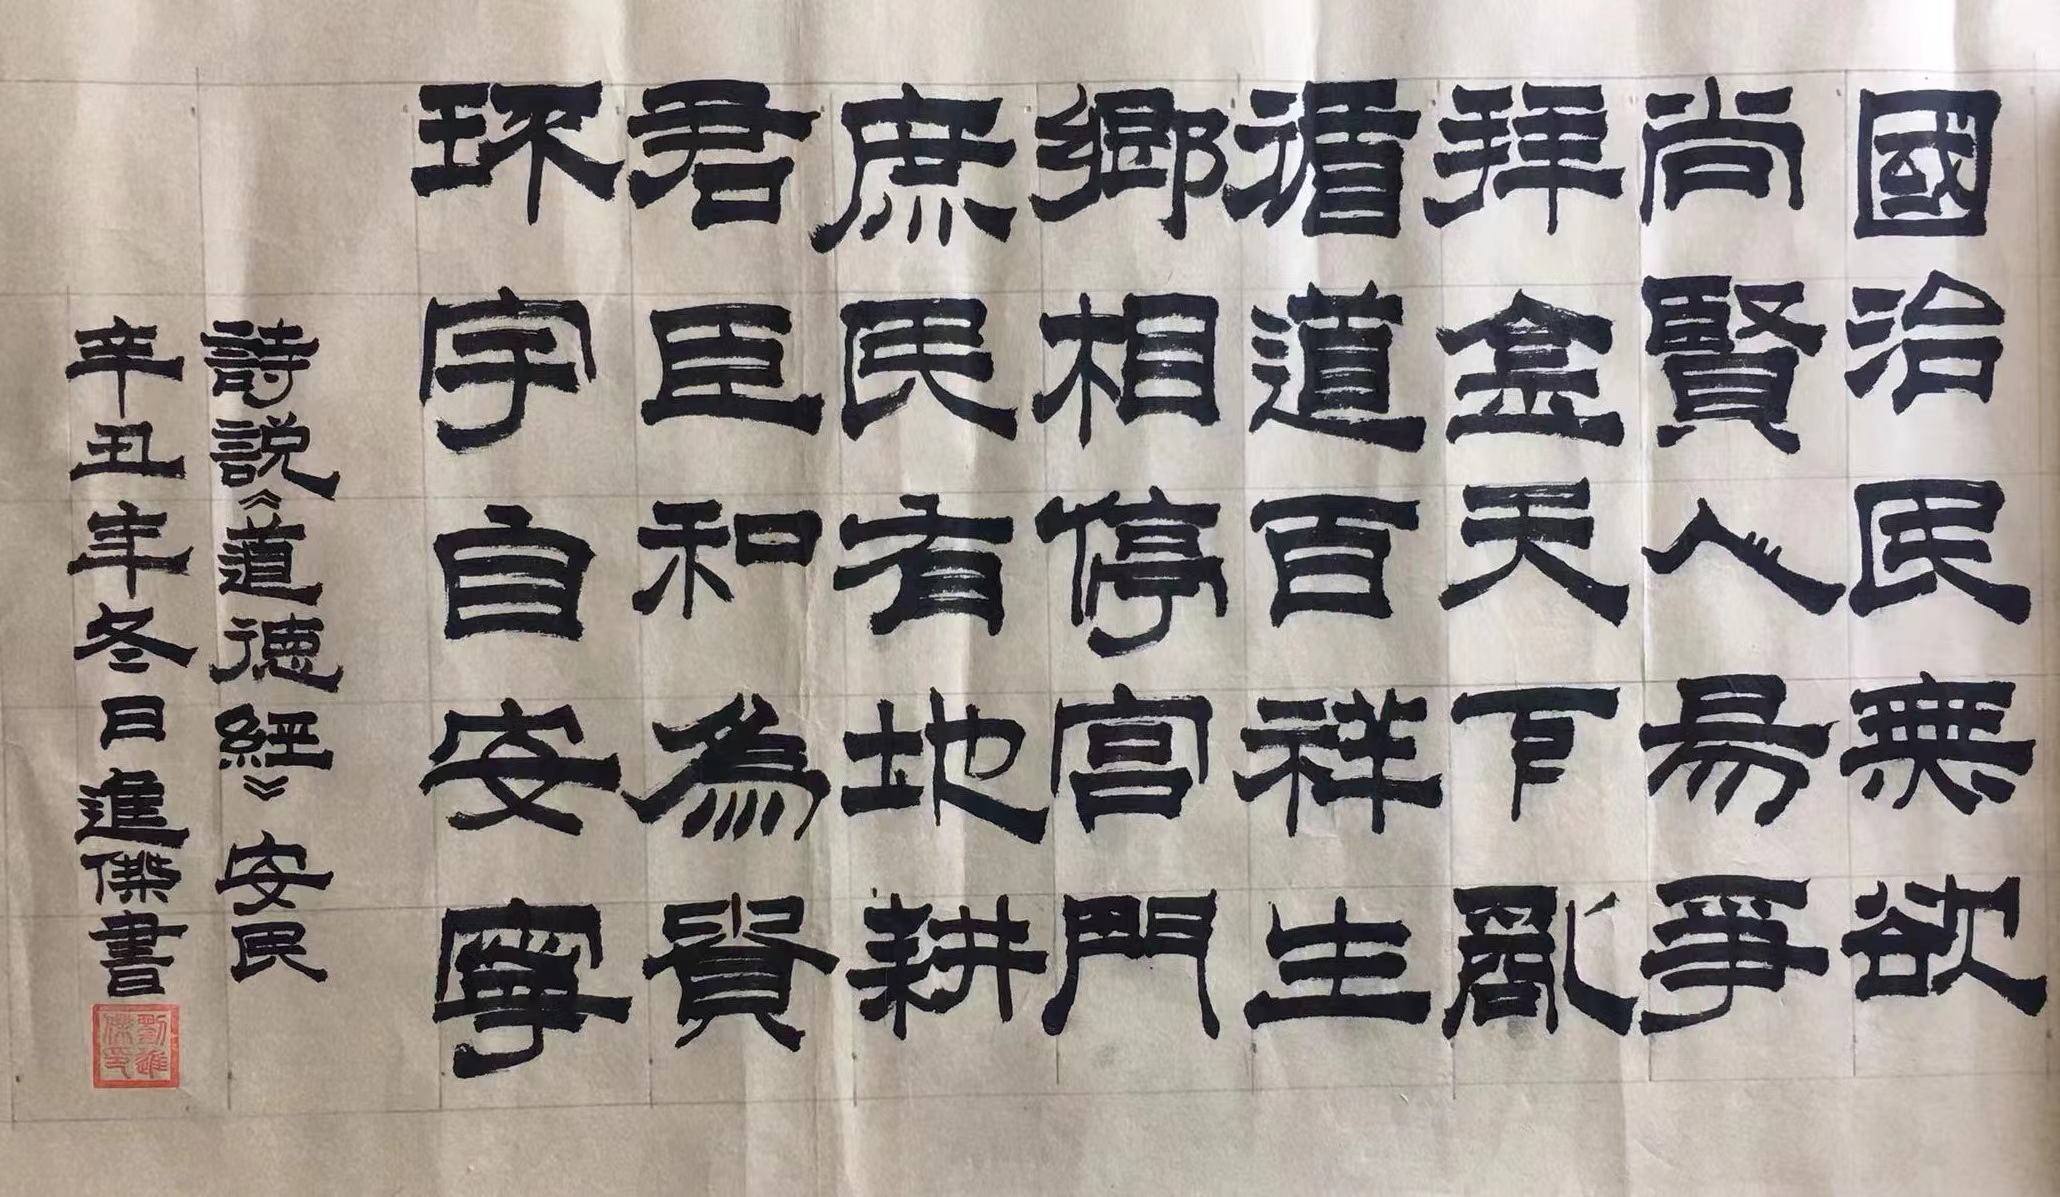 國治民無欲
尚賢人易爭
拜金天下亂
循道百祥生
鄉相停宫門
庶民有地耕
君臣和為貴
环宇自安寧
詩説《道德經》安民
辛丑年冬日進傑書
劉進傑印